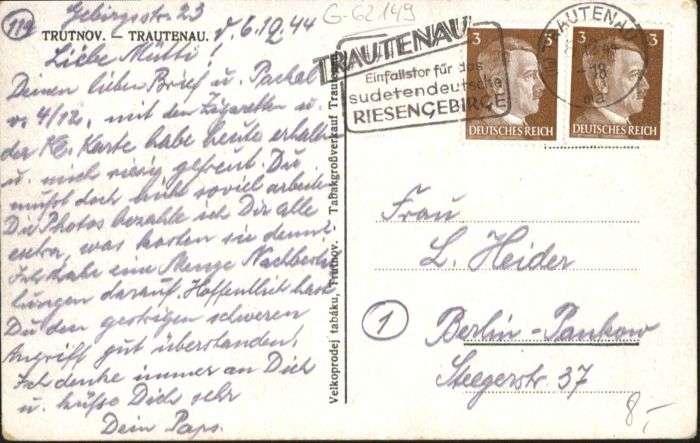 (119)
Gebirgsstr. 23
G-62149
TRUTNOV. — TRAUTENAU.
d. 6.12.44
Liebe Mutti!
Deinen lieben Brief u. Packel
v. 4/12. mit den Zigaretten u.
der Kl. Karte habe heute erhalten
u. mich riesig gefreut. Du
mußt doch nicht soviel arbeiten
Die Photos bezahle ich Dir alle
extra, was kosten sie denn?
Ich habe eine Menge Nachbestel
lungen darauf. Hoffentlich hast
Du den gestrigen schweren
Angriff gut überstanden!
Ich denke immer an Dich
u. küsse Dich sehr
Dein Paps.
Velkoprodej tabáku, Trutnov. Tabakgroßverkauf Trau
TRAUTENAU
Einfallstor für das
sudetendeutsche
RIESENGEBIRGE
TRAUTENAU
18
3
DEUTSCHES REICH
3
DEUTSCHES REICH
Frau
L. Heider
(1) Berlin-Pankow
Steegerstr. 37
8,-